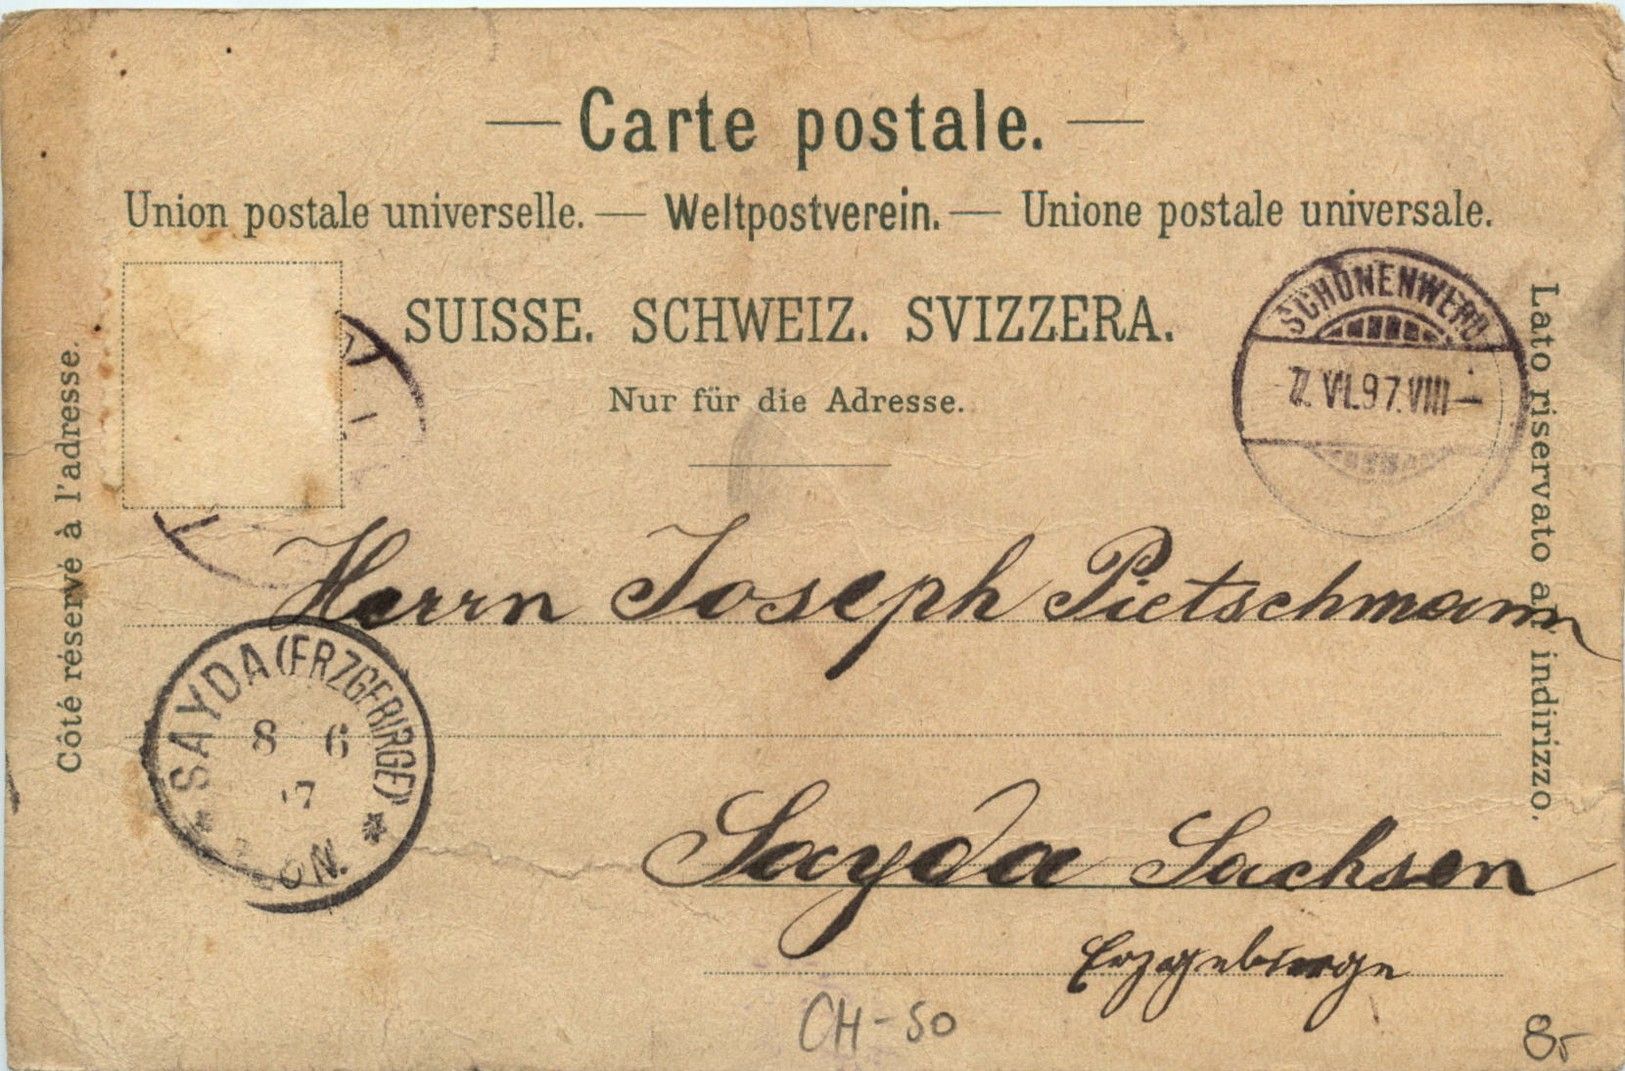 — Carte postale. —
Union postale universelle. — Weltpostverein. — Unione postale universale.
SUISSE. SCHWEIZ. SVIZZERA.
Nur für die Adresse.
Côté réservé à l'adresse.
Lato riservato all'indirizzo.
SCHÖNENWERD
7. VI. 97. VIII —
Herrn Joseph Pietschmann
SAYDA (ERZGEBIRGE)
8 6
7
ON.
Sayda Sachsen
Erzgebirge
CH-SO
8.-